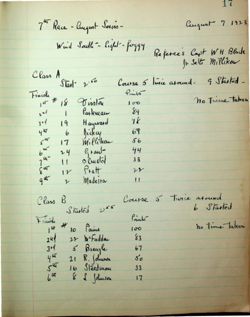 17
7th Race - August Series - August 7, 1928
Wind South - light - foggy
Referee's Capt W H
Jr
Class A
Start 2:00 Course 5 twice around 9 Started -
Finish # Points
1st # 18 100 No Time Taken
2nd 1 89
3rd 19 Hayward 78
4th 6 Dickey 69
5th 17 McPhilton 56
6th 24 Grant 44
7th 11 33
8th 12 Pratt 22
9th 2 Madeira 11
Class B Course 5 twice around
Started 2:05 6 Started
Finish # Points
1st 10 Paine 100 No time Taken
2nd 22 McFadden 83
3rd 5 67
4th 21 R. Johnson 50
5th 16 33
6th 8 S Johnson 17